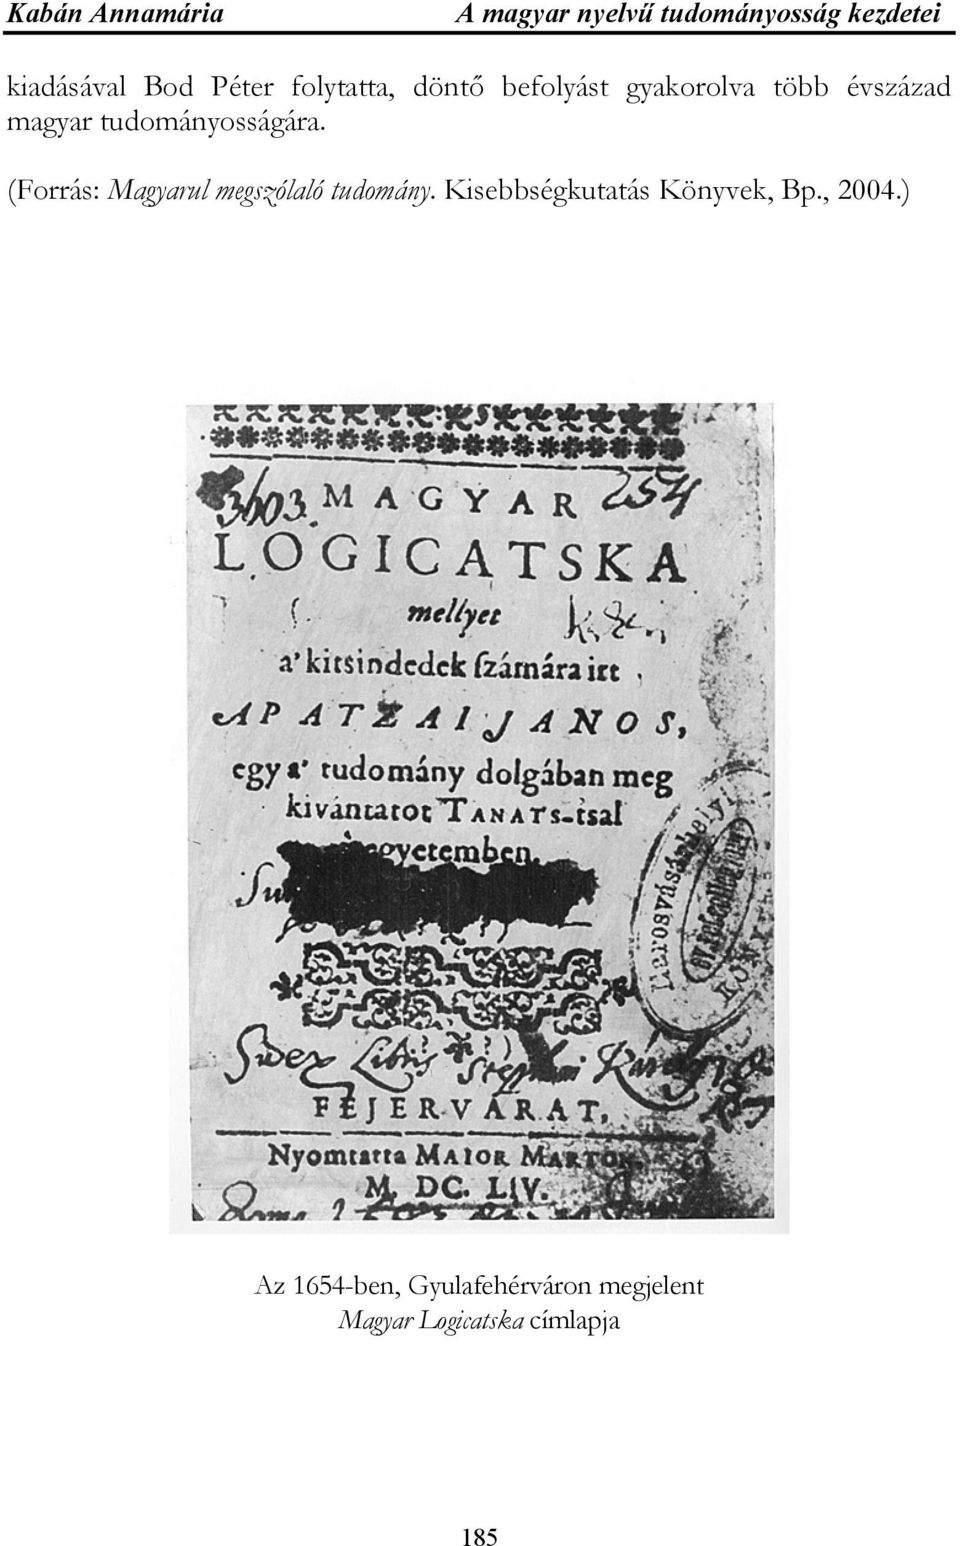 Kabán Annamária A magyar nyelvű tudományosság kezdetei
kiadásával Bod Péter folytatta, döntő befolyást gyakorolva több évszázad
magyar tudományosságára.
(Forrás: Magyarul megszólaló tudomány. Kisebbségkutatás Könyvek, Bp., 2004.)
3603. MAGYAR 254
LOGICATSKA
mellyet
a' kitsindedek ſzámára irt
APATZAI JANOS,
egy a' tudomány dolgában meg
kivántatot TANATS-tsal
egyetemben.
Marosvásárhelyi
Libris Stephani
FEJERVÁRAT,
Nyomtatta MAIOR MARTON
M. DC. LIV.
Az 1654-ben, Gyulafehérváron megjelent
Magyar Logicatska címlapja
185